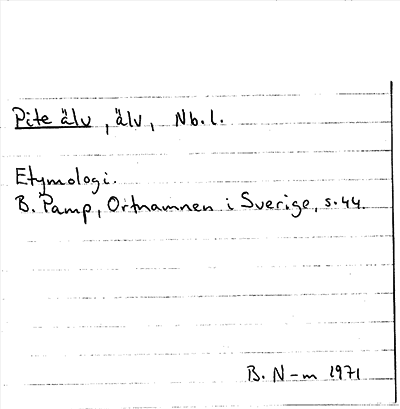 Pite älv, älv, Nb.l.
Etymologi.
B. Pamp, Ortnamnen i Sverige, s.44.
B. N-m 1971